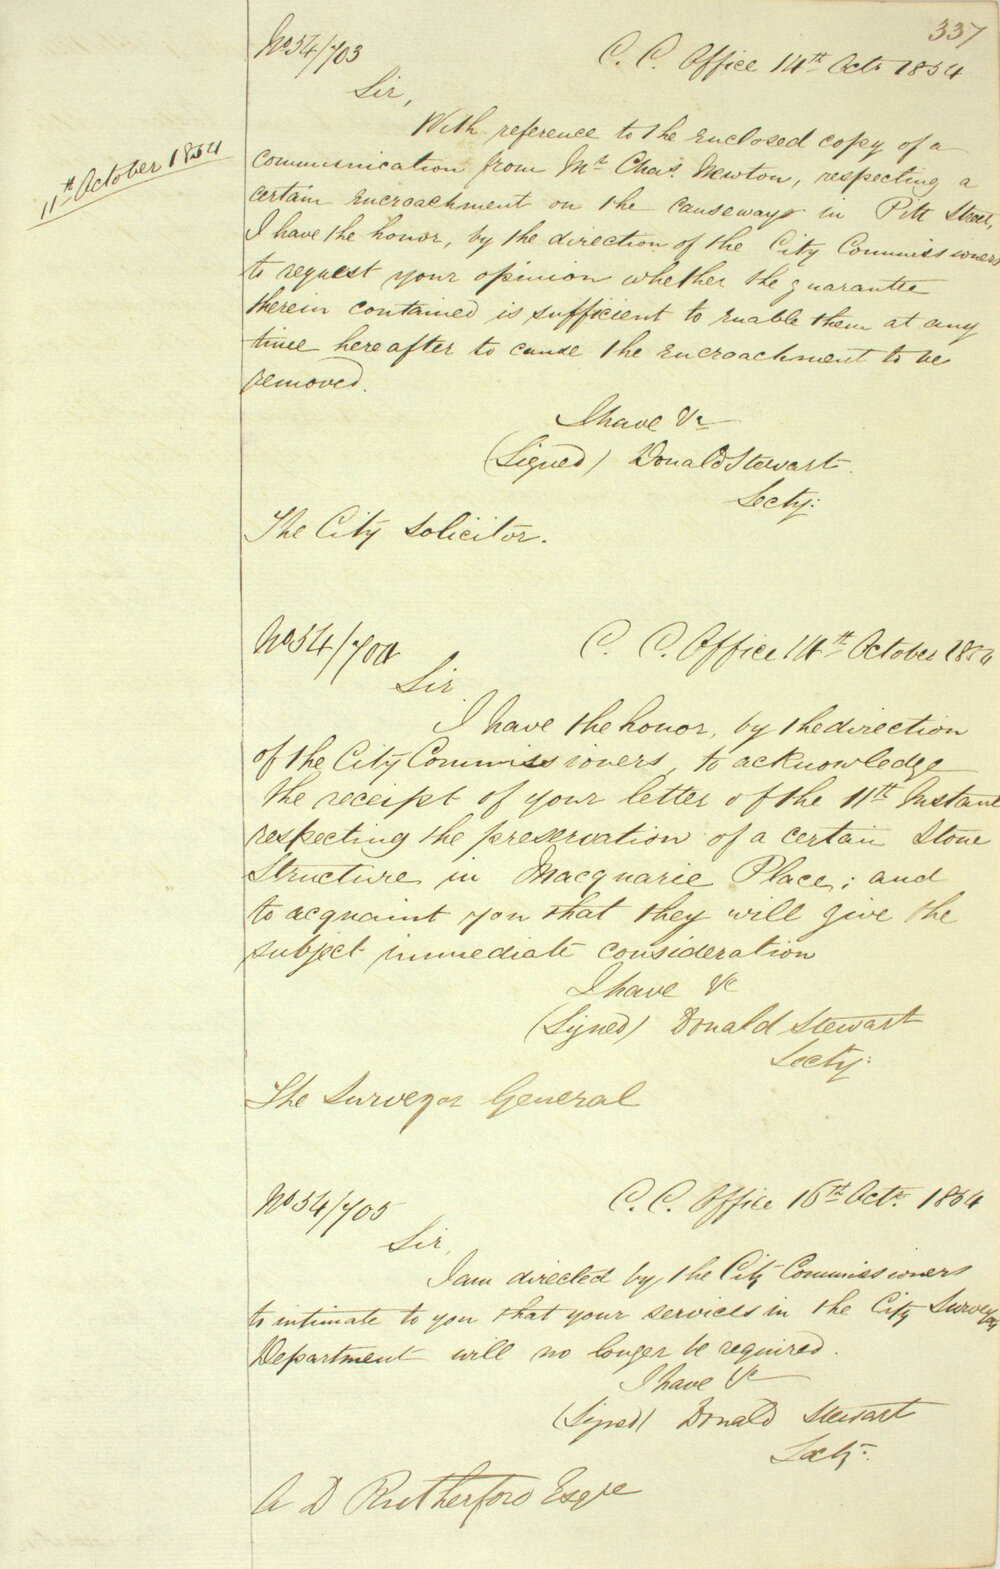 337
No 54/703
C. C. Office 14th Octr 1854
Sir,
11th October 1854
With reference to the enclosed copy of a
communication from Mr Chas. Newton, respecting a
certain encroachment on the causeways in Pitt Street,
I have the honor, by the direction of the City Commissioners
to request your opinion whether the guarantee
therein contained is sufficient to enable them at any
time hereafter to cause the encroachment to be
removed.
I have &c
(Signed) Donald Stewart.
Secty:
The City Solicitor.
No 54/704
C. C. Office 14th October 1854
Sir
I have the honor, by the direction
of the City Commissioners, to acknowledge
the receipt of your letter of the 11th Instant
respecting the preservation of a certain Stone
Structure in Macquarie Place; and
to acquaint you that they will give the
subject immediate consideration
I have &c
(Signed) Donald Stewart
Secty:
The Surveyor General
No 54/705
C. C. Office 16th Octr. 1854
Sir,
I am directed by the City Commissioners
to intimate to you that your services in the City Surveyors
Department will no longer be required.
I have &c
(Signed) Donald Stewart
Secty:
A D Rutherford Esqre